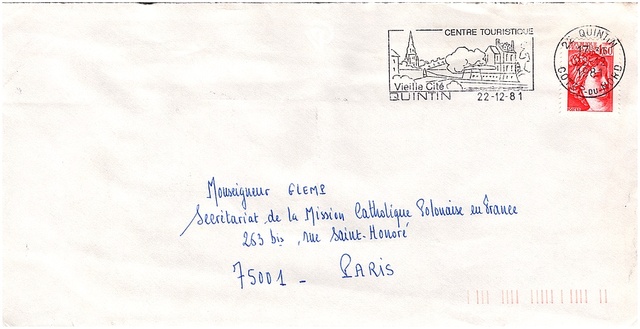 CENTRE TOURISTIQUE
Vieille Cité
QUINTIN 22-12-81
QUINTIN
1,60
Monseigneur GLEMP
Secrétariat de la Mission Catholique Polonaise en France
263 bis, rue Saint-Honoré
75001 - PARIS